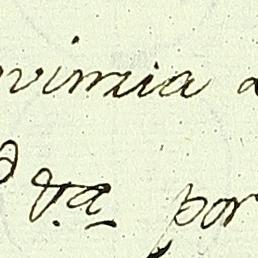 ovincia a
V.a por